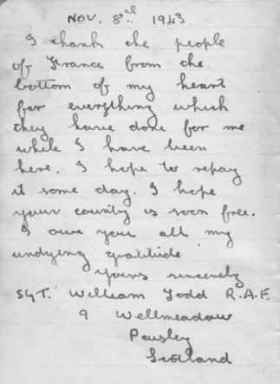 NOV. 8rd 1943
I thank the people
of France from the
bottom of my heart
for everything which
they have done for me
while I have been
here. I hope to repay
it some day. I hope
your country is soon free.
I owe you all my
undying gratitude
Yours sincerely
SGT. William Todd R.A.F.
9 Wellmeadow
Paisley
Scotland